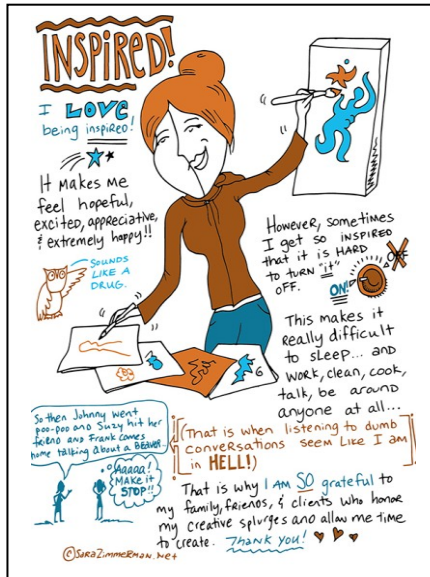 INSPIRED!
I LOVE
being inspired!
It makes me
feel hopeful,
excited, appreciative,
& extremely happy!!
SOUNDS
LIKE A
DRUG.
However, sometimes
I get so INSPIRED
that it is HARD
to turn "it"
OFF.
OFF
ON!
This makes it
really difficult
to sleep... and
work, clean, cook,
talk, be around
anyone at all...
So then Johnny went
poo-poo and Suzy hit her
friend and Frank comes
home talking about a BEAVER...
Aaaaa!
MAKE it
STOP!!
(That is when listening to dumb
conversations seem like I am
in HELL!)
That is why I AM SO grateful to
my family, friends, & clients who honor
my creative splurges and allow me time
to create. Thank you!
©SaraZimmerman.net